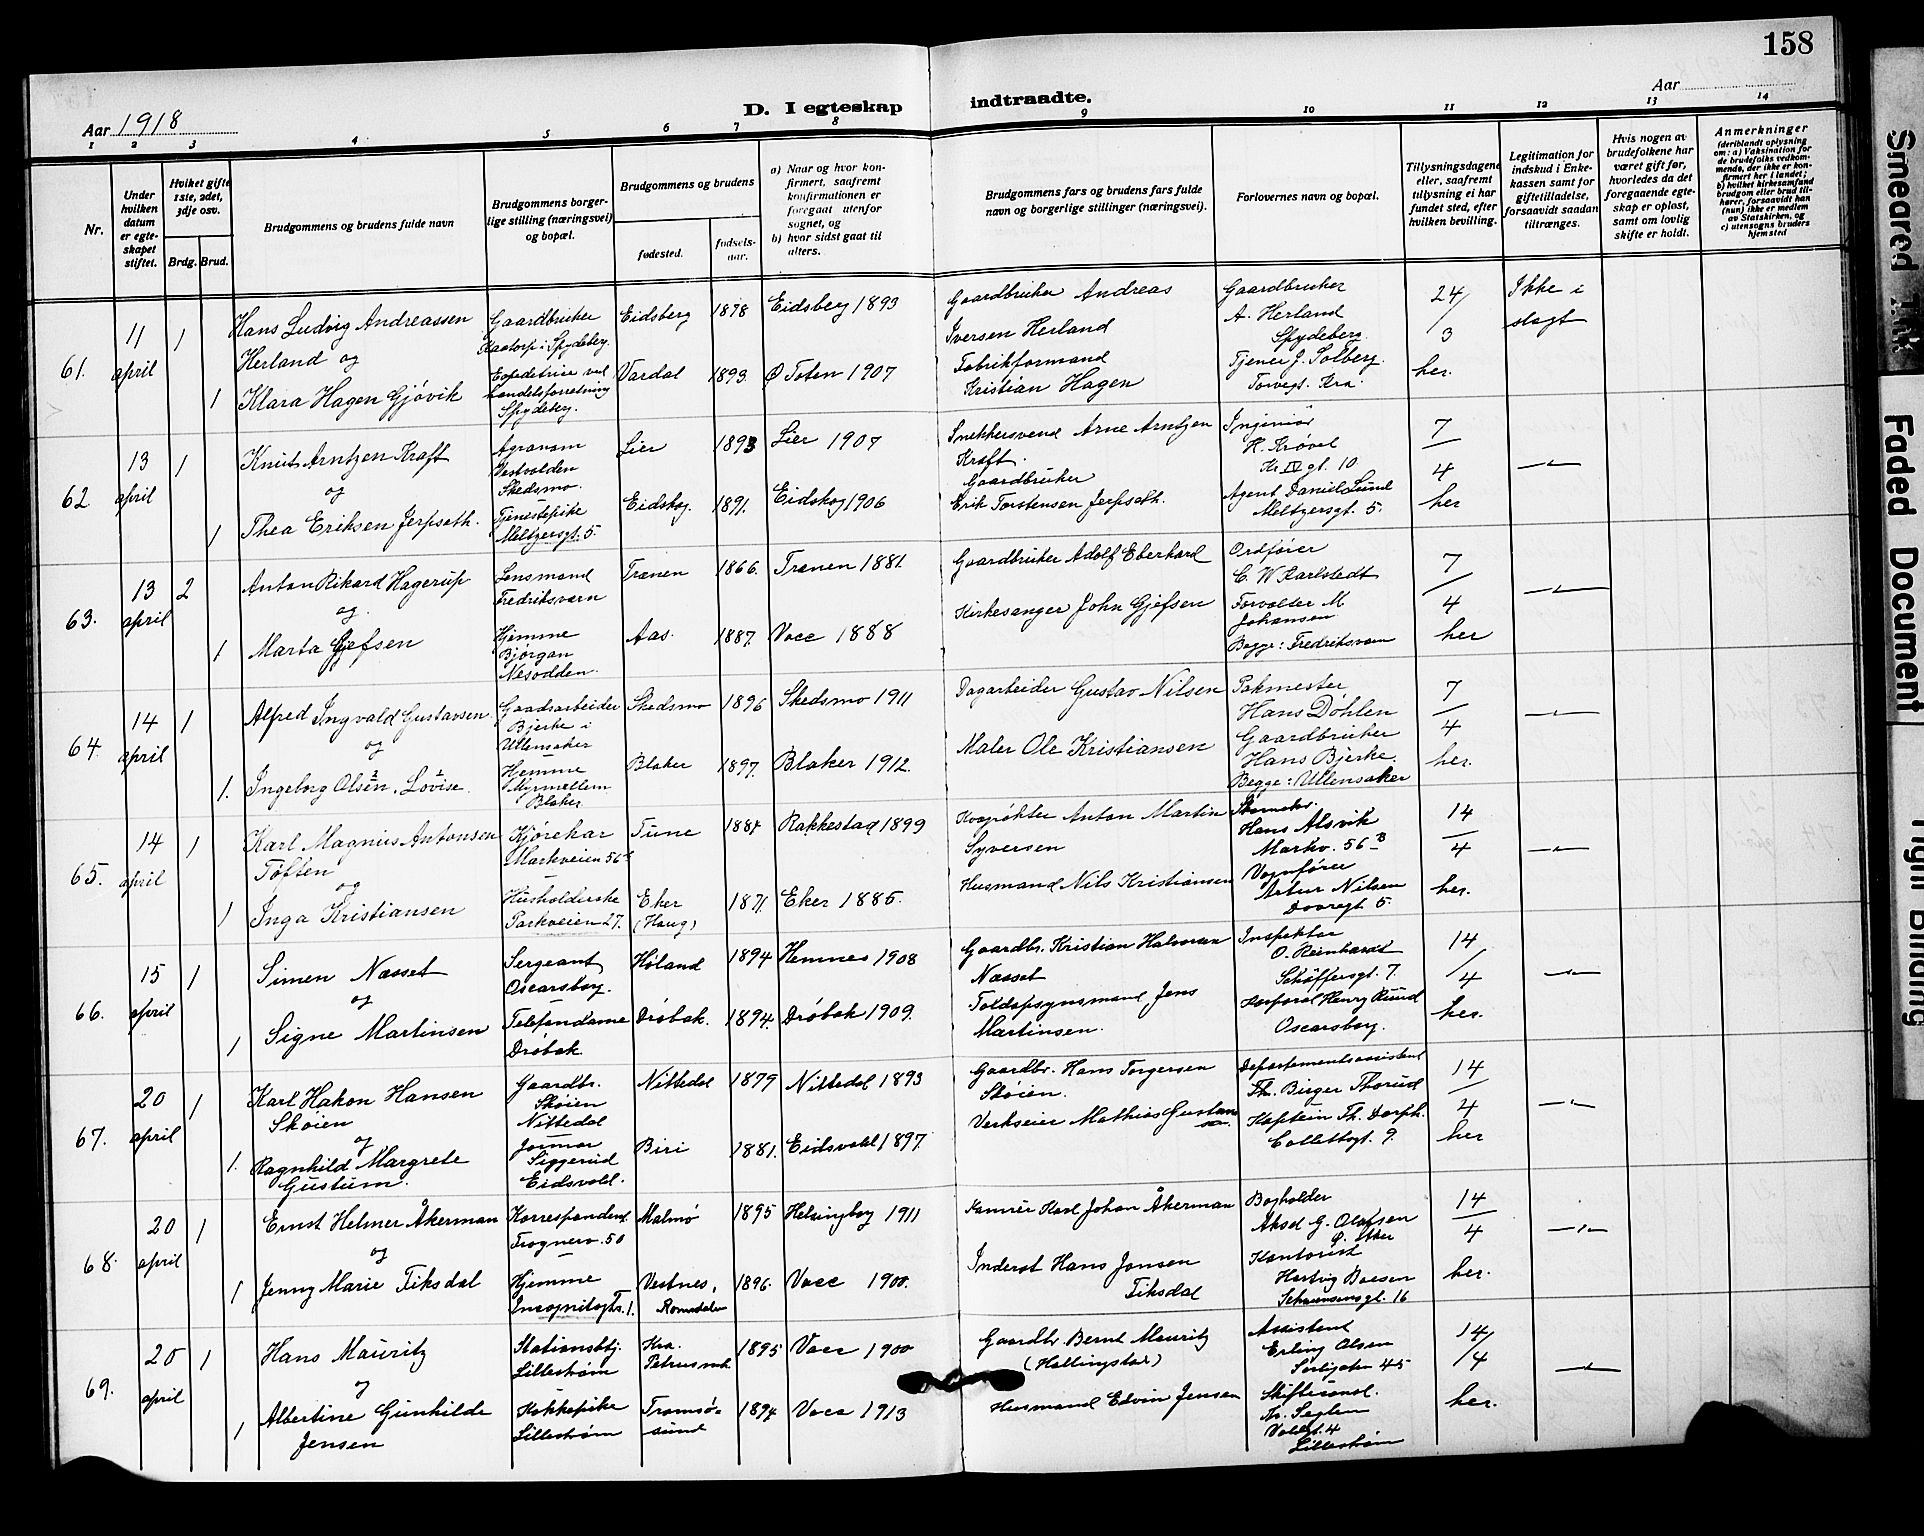 158
Aar 1918
D. I egteskap indtraadte.
Aar
1 2 3 4 5 6 7 8 9 10 11 12 13 14
Nr.
Under hvilken datum er egteskapet stiftet.
Hvilket gifte 1ste, 2det, 3dje osv.
Brdg. Brud.
Brudgommens og brudens fulde navn
Brudgommens borgerlige stilling (næringsvei) og bopæl.
Brudgommens og brudens
fødested.
fødselsaar.
a) Naar og hvor konfirmert, saafremt konfirmationen er foregaat utenfor sognet, og
b) hvor sidst gaat til alters.
Brudgommens fars og brudens fars fulde navn og borgerlige stillinger (næringsvei).
Forlovernes navn og bopæl.
Tillysningsdagene eller, saafremt tillysning ei har fundet sted, efter hvilken bevilling.
Legitimation for indskud i Enkekassen samt for giftetilladelse, forsaavidt saadan tiltrænges.
Hvis nogen av brudefolkene har været gift før, hvorledes da det foregaaende egteskap er opløst, samt om lovlig skifte er holdt.
Anmerkninger
(deriblandt oplysning om: a) Vaksination for de brudefolks vedkommende, der ikke er konfirmert her i landet; b) hvilket kirkesamfund brudgom eller brud tilhører, forsaavidt han (hun) ikke er medlem av Statskirken, og c) utensogns bruders hjemsted
61. 11 april 1 Hans Ludvig Andreassen Herland og Gaardbruker Spydeberg. Eidsberg 1878 Eidsberg 1893 Gaardbruker Andreas Iversen Herland Gaardbruker A. Herland Spydeberg 24/3 her. Ikke i slegt
1 Klara Hagen Gjøvik Expeditrise ved handelsforretning Spydeberg. Vardal 1893. Ø Toten 1907 Fabrikformand Kristian Hagen Tjener J. Solberg. Torvegt. Kra.
62 13 april 1 Knut Arntzen Kraft og Agronom Vestvolden Skedsmo. Lier 1893 Lier 1907 Snekkersvend Arne Arntzen Kraft. Ingeniør H. Krøvel Kr. IV gt. 10 7/4 her
1 Thea Eriksen Jerpseth. Tjenestepike Meltzersgt. 5. Eidskog. 1891. Eidskog 1906 Gaardbruker Erik Torstensen Jerpseth. Agent Daniel Lund Meltzersgt. 5.
63. 13 april 2 Anton Rikard Hagerup og Lensmand Fredriksværn Tranen 1866. Tranen 1881 Gaardbruker Adolf Eberhard Ordfører C. W Karlstedt 7/4 her
1 Marta Gjefsen Hjemme Bjørgan Nesodden. Aas. 1887. Vacc 1888 Kirkesanger John Gjefsen Forvalter M Johansen Begge: Fredriksværn
64. 14 april 1 Alfred Ingvald Gustavsen og Gaardsarbeider Bjerke i Ullensaker Skedsmo 1896 Skedsmo 1911 Dagarbeider Gustav Nilsen Pakmester Hans Døhlen 7/4 her.
1. Ingeborg Olsen, Lovise. Hjemme Myrmellem Blaker Blaker 1897. Blaker 1912. Maler Ole Kristiansen Gaardbruker Hans Bjerke. Begge: Ullensaker
65. 14 april 1 Karl Magnus Antonsen Toften og Kjørekar Markveien 56 Tune 1884 Rakkestad 1899 Anton Martin Syversen Hans Alsvik Markv. 56 B 14/4 her.
1 Inga Kristiansen Husholderske Parkveien 27. Eker (Haug) 1871. Eker 1885. Husmand Nils Kristiansen Vognfører Artur Nilsen 5.
66. 15 april 1 Simen Næsset og Sergeant Oscarsborg. Høland 1894 Hemnes 1908 Gaardbr. Kristian Halvorsen Næsset Inspektør O. Reinhardt Schøffersgt. 7. 14/4 her.
1 Signe Martinsen Telefondame Drøbak Drøbak. 1894. Drøbak 1909. Toldopsynsmand Jens Martinsen. Korporal Henry Rund Oscarsborg.
67. 20 april 1 Karl Hakon Hansen Skøien og Gaardbr. Skøien Nittedal Nittedal 1879 Nittedal 1893 Gaardbr. Hans Torgersen Skøien. Departementsassistent Th. Birger Thorud 14/4 her
1. Ragnhild Margrete Gustum. Jormor Siggerud Eidsvold. Biri 1881. Eidsvold 1897. Verkseier Mathias Kaptein Th. Dorph. Collettsgt. 9.
68. 20 april 1 Ernst Helmer Åkerman og Korrespondent Frognerv. 50 Malmø 1895 Helsingborg 1911 Karl Johan Åkerman Bogholder Aksel G. Olafsen Ø. Aker 14/4 her.
1 Jenny Marie Fiksdal Hjemme Incognitogt. 1. Vestnes, Romsdalen 1896. Vacc 1900. Inderst Hans Jonsen Fiksdal Kontorist Hartvig Boesen 16
69. 20 april 1 Hans Mauritz og Stationsbtj. Lillestrøm Kra. Petrus mk 1895 Vacc 1900 Gaardbr. Bernt Mauritz (Hallingdal) Assistent Erling Olsen 45 14/4 her.
1 Albertine Gunhilde Jensen Kokkepike Lillestrøm Tromsøsund 1894 Vacc 1913 Husmand Edvin Jensen Voldgt. 4 Lillestrøm
Smeared Ink
Faded Document
Tight Binding